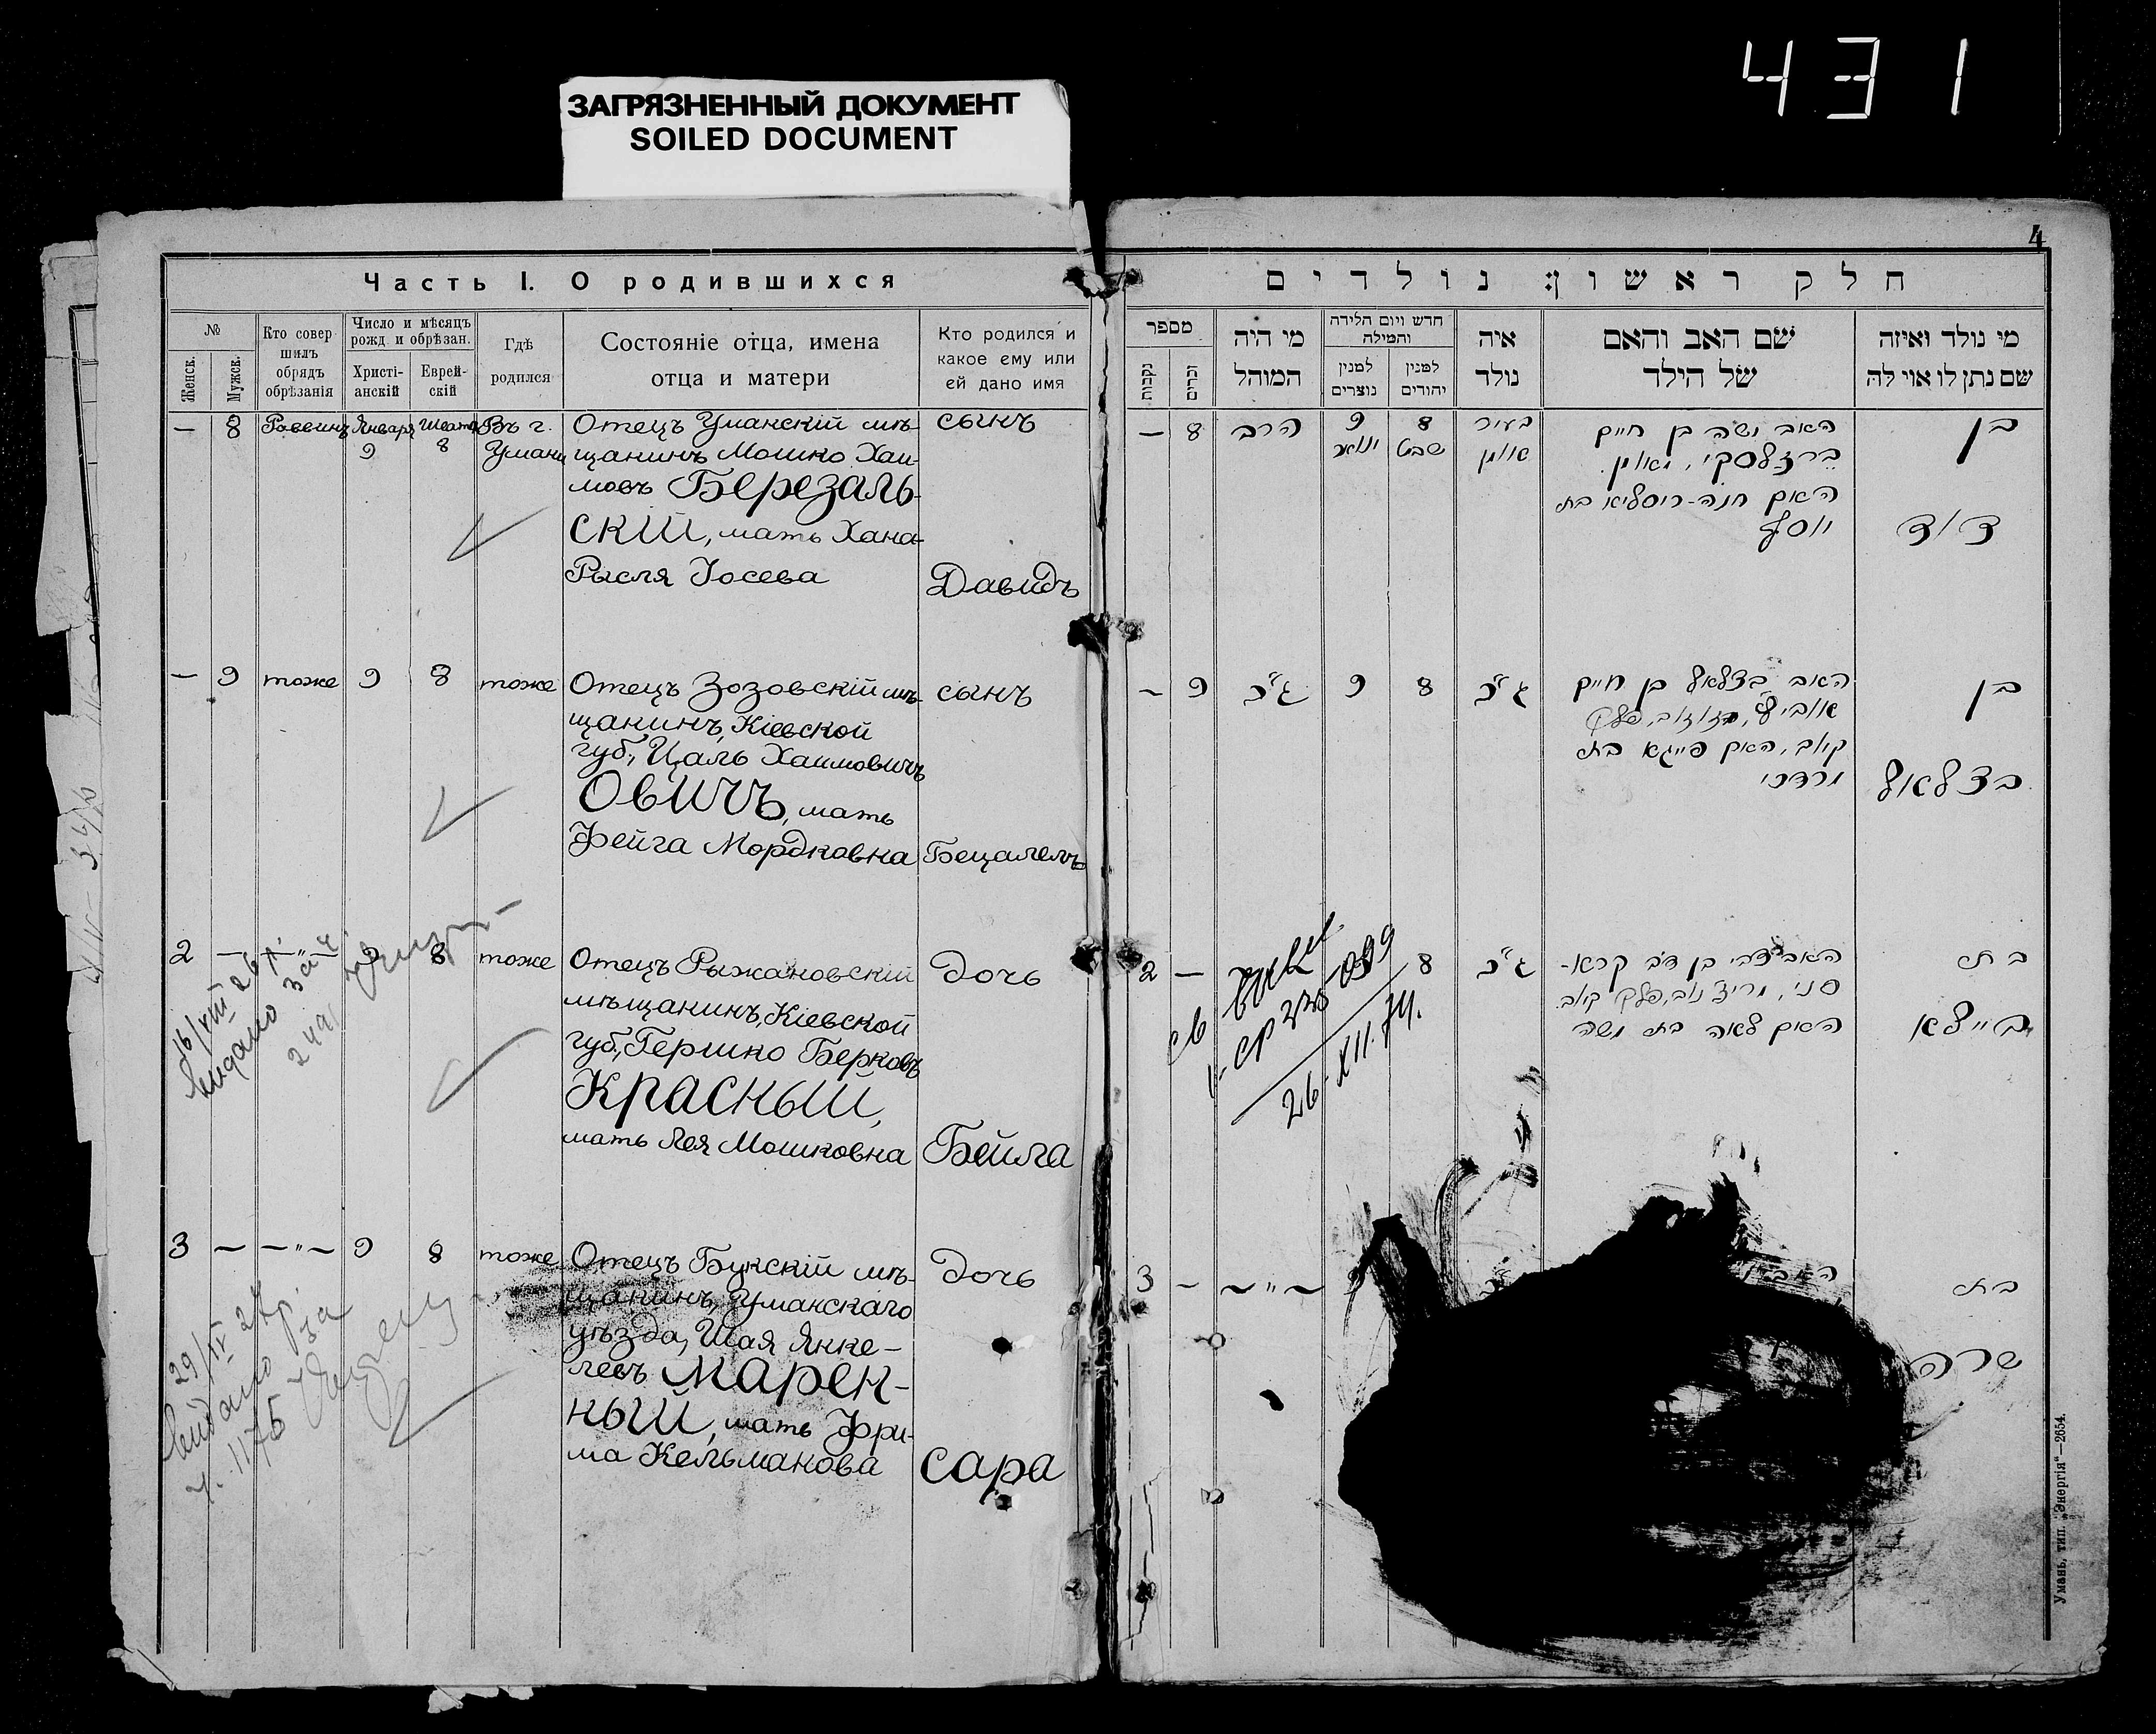 431
ЗАГРЯЗНЕННЫЙ ДОКУМЕНТ
SOILED DOCUMENT
Часть I. О родившихся
№
Женск.
Мужск.
Кто совер
шилъ
обрядъ
обрѣзанія
Число и мѣсяцъ
рожд. и обрѣзан.
Христі-
анскій
Еврей-
скій
Гдѣ
родился
Состояніе отца, имена
отца и матери
Кто родился и
какое ему или
ей дано имя
— 8 Раввинъ Января 9 Шватъ 8
Въ г.
Умани
Отецъ Уманскій мѣ-
щанинъ Мошко Хаи-
мовъ Березаль-
скій, мать Хана-
Рысля Іосева
сынъ
Давидъ
— 9 тоже 9 8 тоже
Отецъ Зозовскій мѣ-
щанинъ, Кіевской
губ., Цаль Хаимовичъ
Овичъ, мать
Фейга Мордковна
сынъ
Бецалелъ
2 — — " — 9 8 тоже
Отецъ Рыжановскій
мѣщанинъ, Кіевской
губ., Гершко Берковъ
Красный,
мать Лея Мошковна
дочь
Бейла
16/VIII 26 р.
видано за ч.
2491
3 — — " — 9 8 тоже
Отецъ Букскій мѣ-
щанинъ, Уманскаго
уѣзда, Шая Янке-
левъ Марен-
ный, мать Фри-
ма Кельманова
дочь
Сара
29/IV 27 р.
видано за
ч. 1175
4
חלק ראשון: נולדים
מספר
נקבות
זכרים
מי היה
המוהל
חדש ויום הלידה
והמילה
למנין
נוצרים
למנין
יהודים
איה
נולד
שם האב והאם
של הילד
מי נולד ואיזה
שם נתן לו אוי לה
— 8 הרב
9
ינואר
8
שבט
בעיר
אומן
האב משה בן חיים
ברזלסקי, מאומן.
האם חנה-רוסליא בת
יוסף
בן
דוד
— 9 ג״כ 9 8 ג״כ
האב בצלאל בן חיים
אוביץ, מזוזוב, פלק
קיוב, האם פייגא בת
מרדכי
בן
בצלאל
2 — 8 ג״כ
האב צבי בן דב קרא-
סני, מריזנוב, פלק קיוב.
האם לאה בת משה
בת
ביילא
26.XII.74.
3 — — " —
בת
שרה
Умань, тип. „Энергія“—2654.